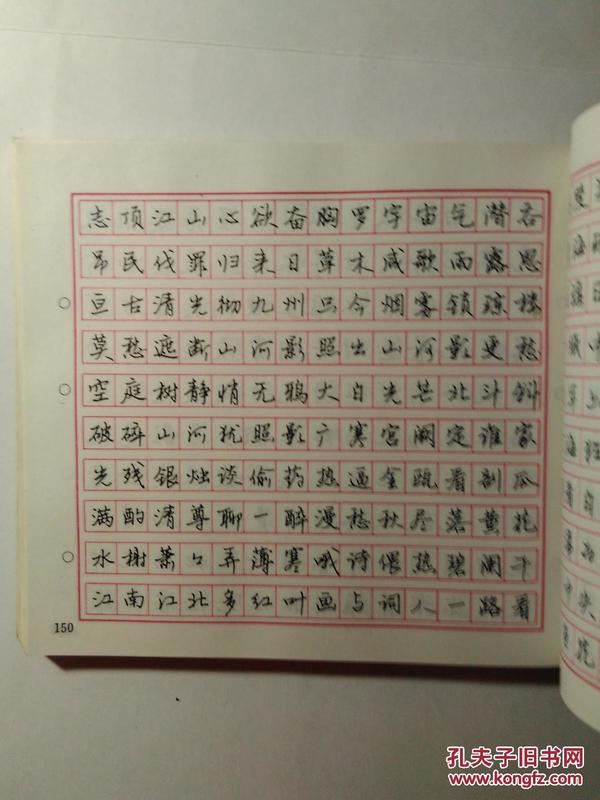 志顶江山心欲奋胸罗宇宙气潜吞
吊民伐罪归来日草木咸歌雨露恩
亘古清光彻九州只今烟雾锁琼楼
莫愁遮断山河影照出山河影更愁
空庭树静悄无鸦大白光芒北斗斜
破碎山河犹照影广寒宫阙定谁家
光残银烛谈偷药热逼金瓯看剖瓜
满酌清尊聊一醉漫愁秋尽落黄花
水榭萧々弄薄寒哦诗偎热碧阑干
江南江北多红叶画与词人一路看
150
孔夫子旧书网
www.kongfz.com